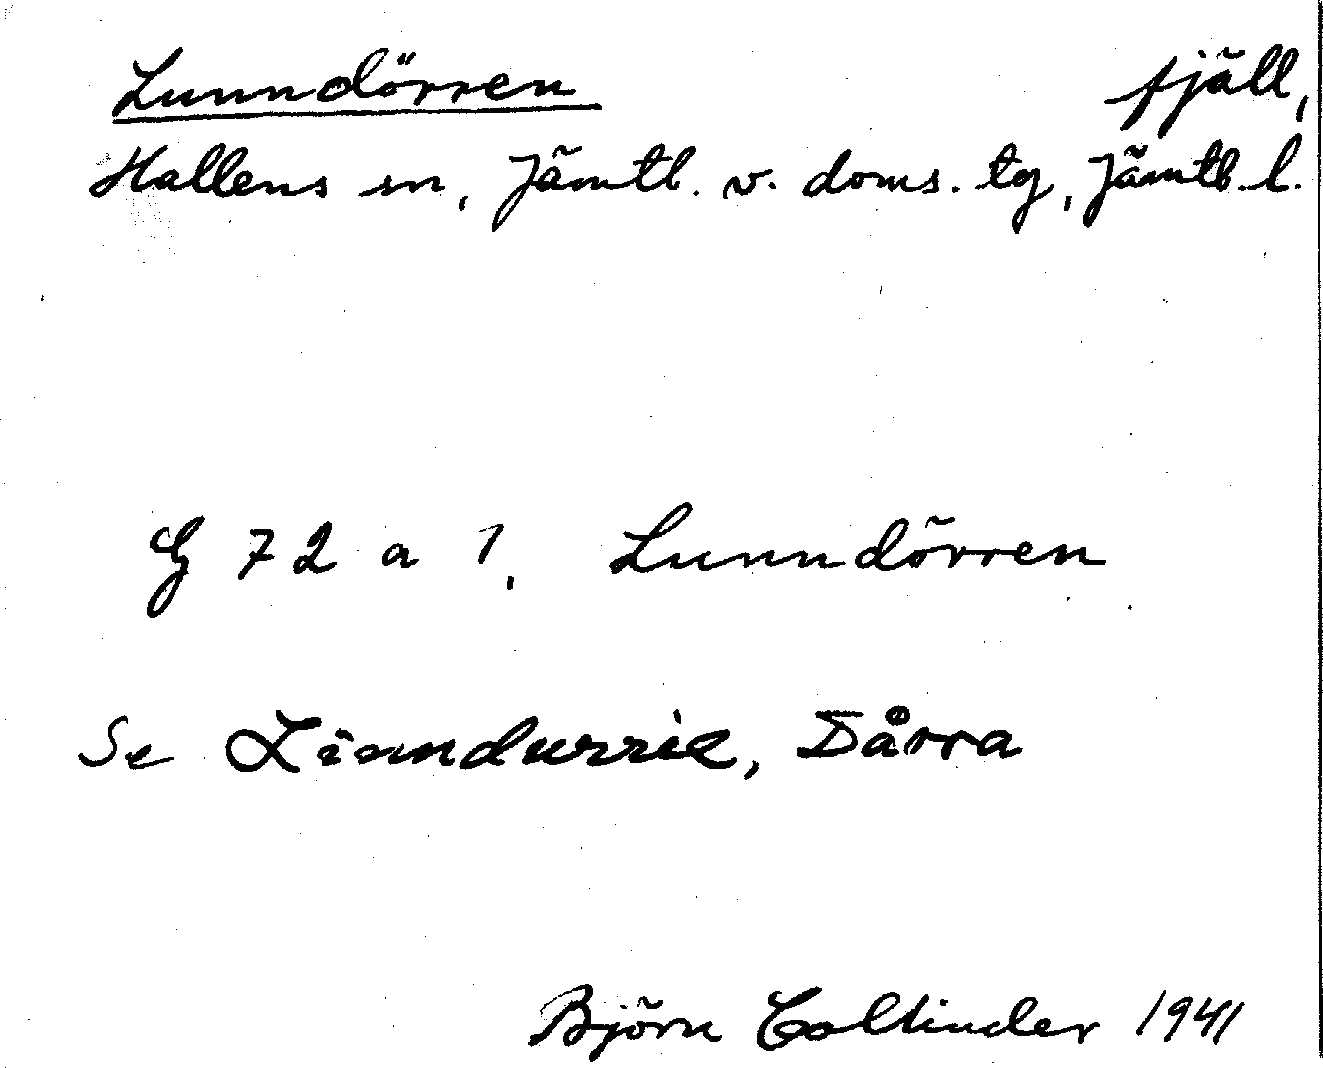 Lunndörren fjäll,
Hallens sn, Jämtl. v. doms. tg, Jämtl. l.
G 72 a 1. Lunndörren
Se Linndurrie, Dårra
Björn Collinder 1941